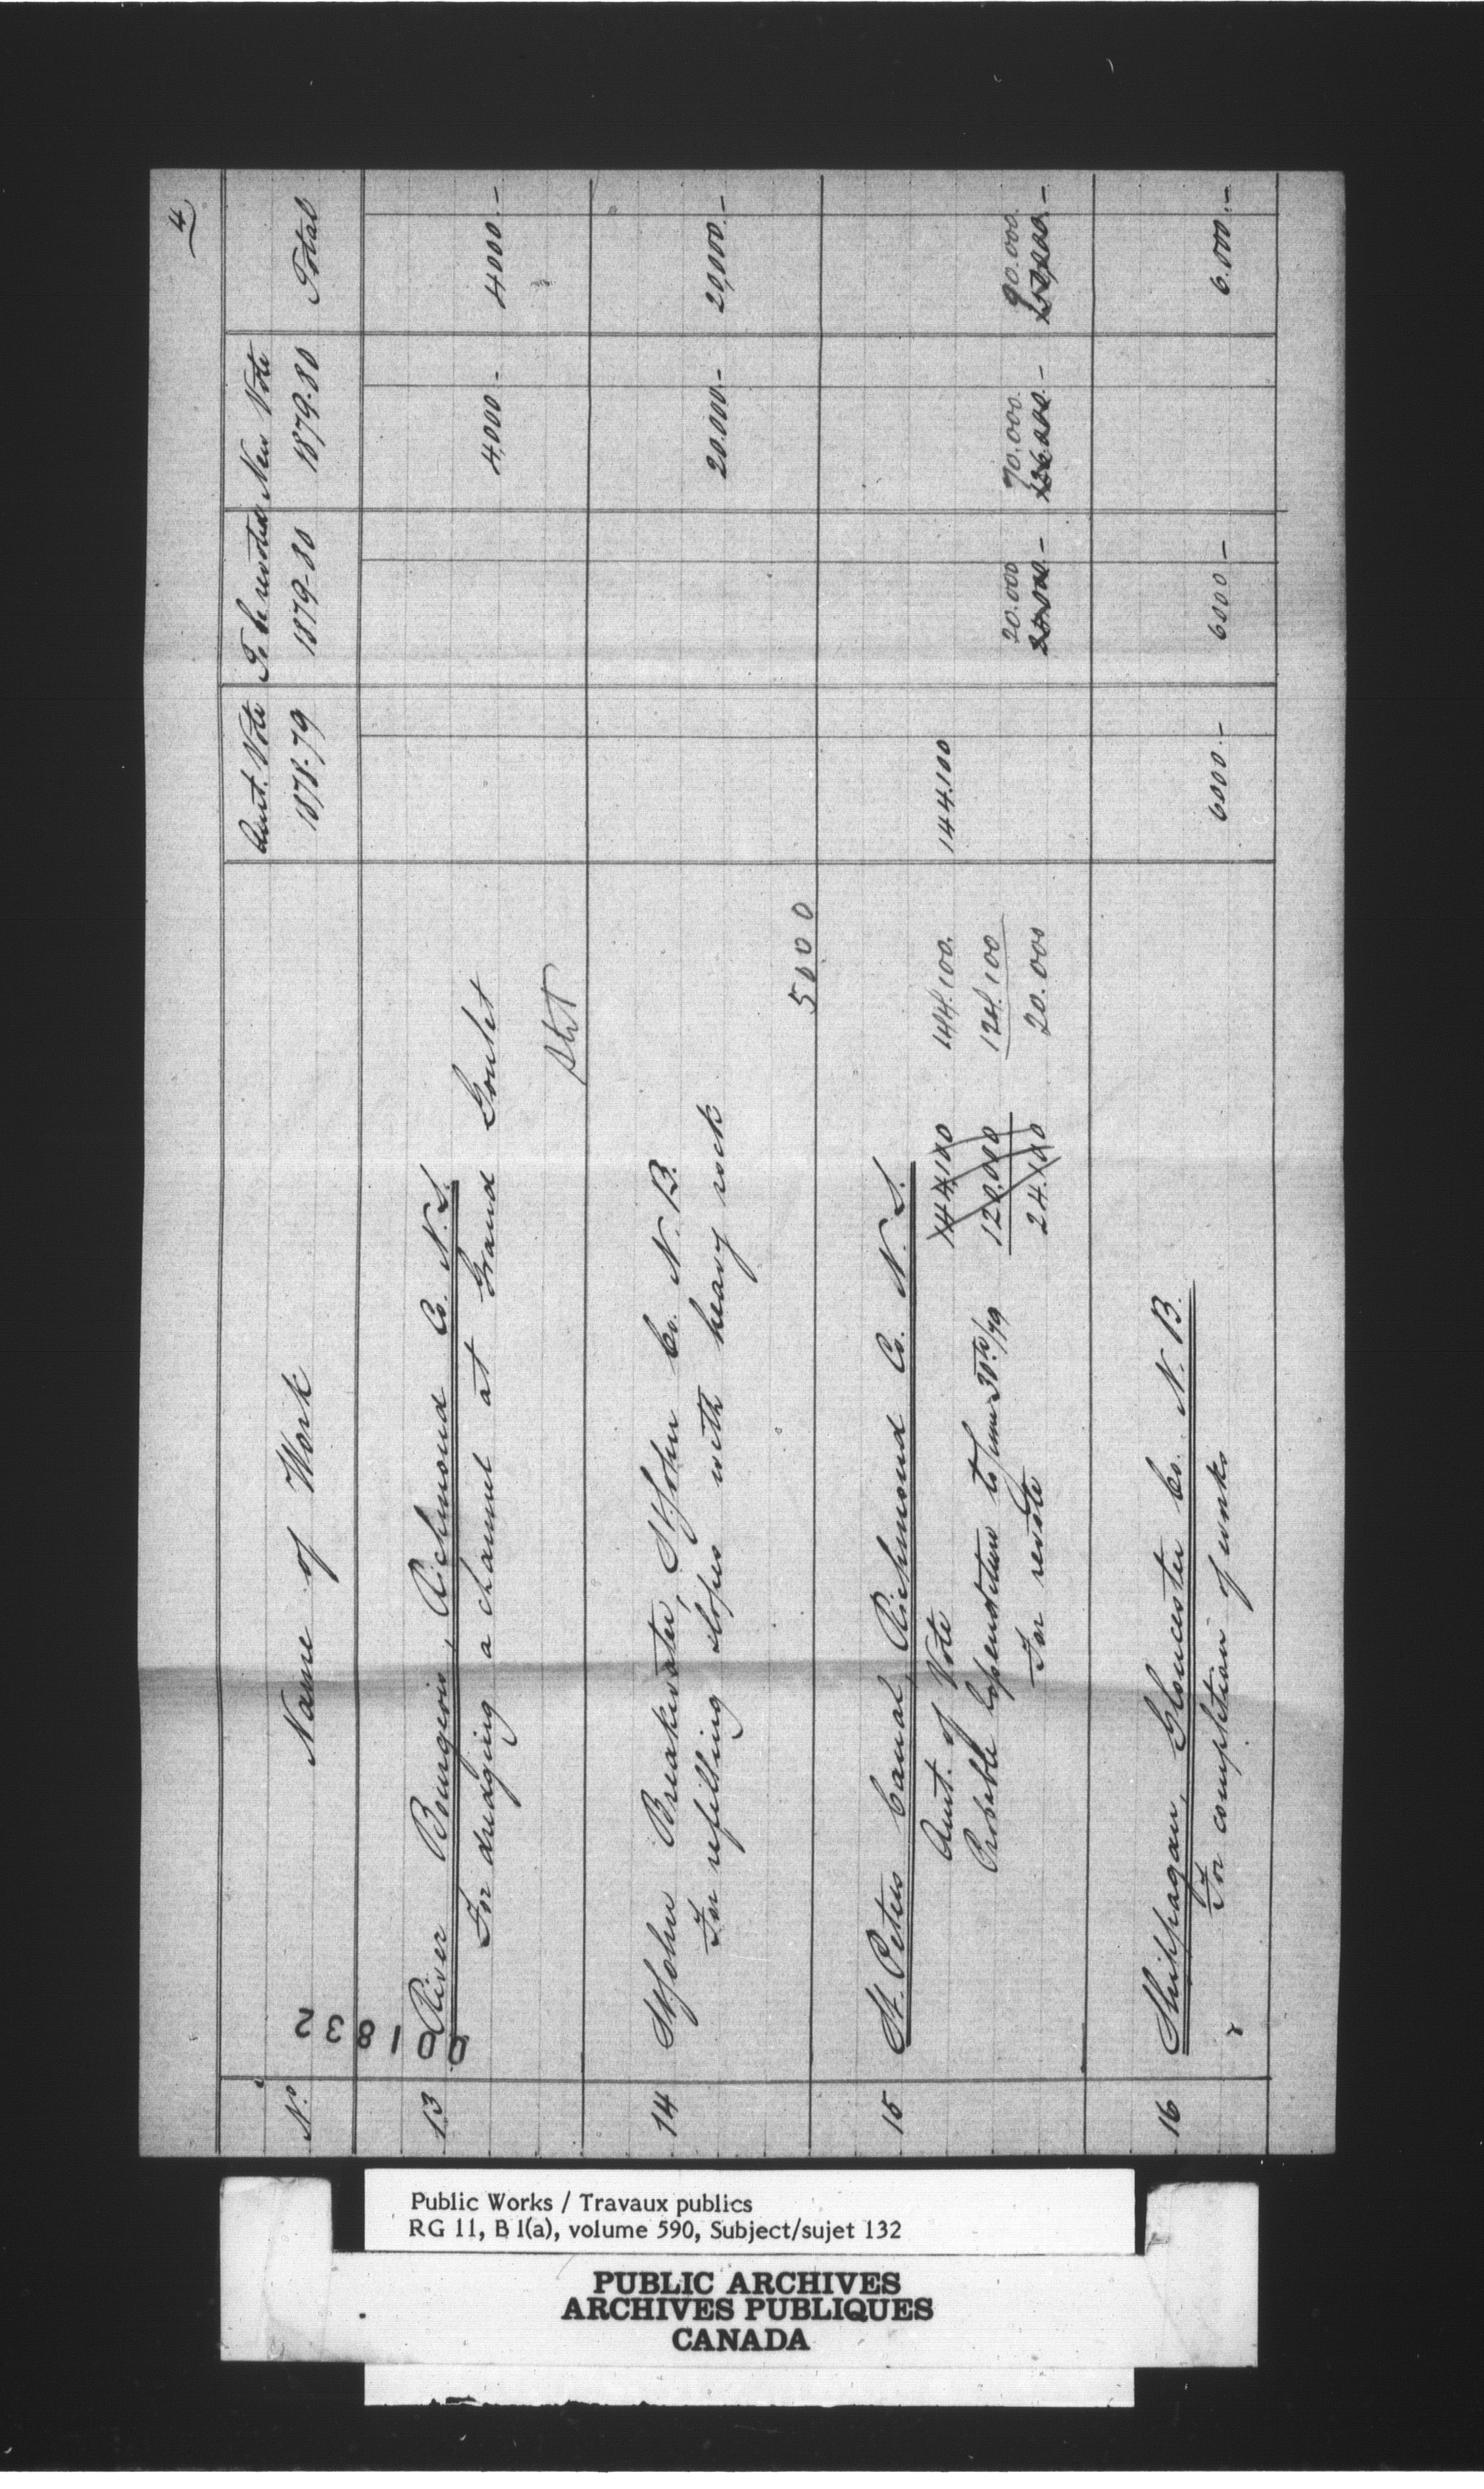 4
No. Name of Work Amt. Vote 1878-79 To be revoted 1879-80 New Vote 1879-80 Total
001832
13 River Bourgeois, Richmond Co. N.S.
For dredging a channel at Grand Goulet 4000.- 4000.-
14 St. John Breakwater, St. John Co. N.B.
For refilling slopes with heavy rock 20.000.- 20,000.-
5000
15 St. Peters Canal, Richmond Co. N.S.
Amt. of Vote 144.100 144.100. 144.100
Probable Expenditure to June 30th/79 120.000 124.100
For revote 24.100 20.000 20.000 70.000. 90.000.
16 Shippagan, Gloucester Co. N.B.
For completion of works 6000.- 6000- 6.000.-
Public Works / Travaux publics
RG 11, B 1(a), volume 590, Subject/sujet 132
PUBLIC ARCHIVES
ARCHIVES PUBLIQUES
CANADA